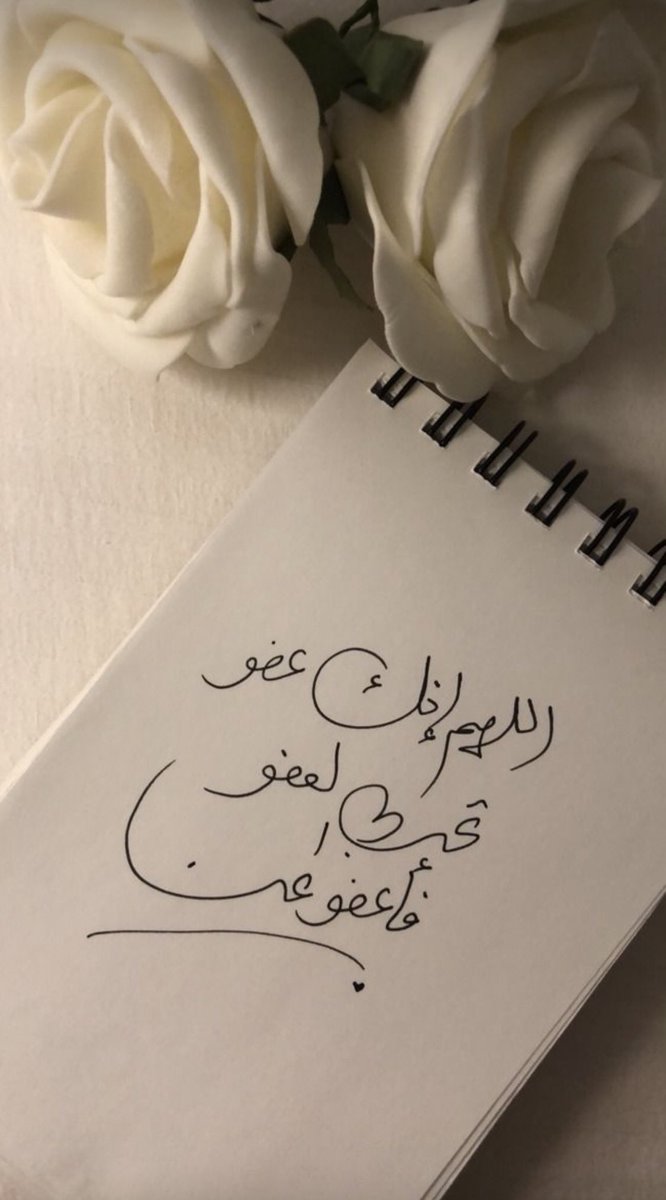 اللهم إنك عفو
تحب العفو
فأعفو عن